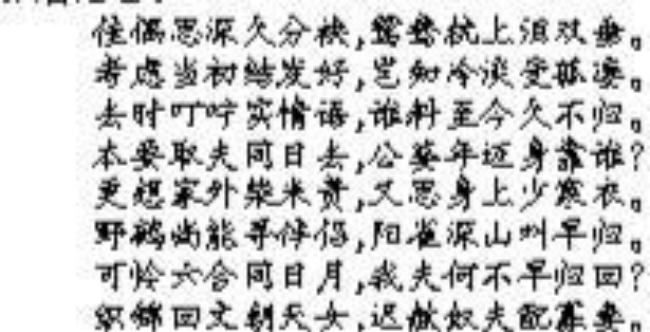 佳偶思深久分袂,鸳鸯枕上泪双垂。
考虑当初结发好,岂知冷淡受孤凄。
去时叮咛实情语,谁料至今久不归。
本要取夫同日去,公婆年迈身靠谁?
更想家外柴米贵,又思身上少寒衣。
野鹤尚能寻伴侣,阳雀深山叫早归。
可怜六合同日月,我夫何不早归回?
织锦回文朝天女,早赦奴夫配